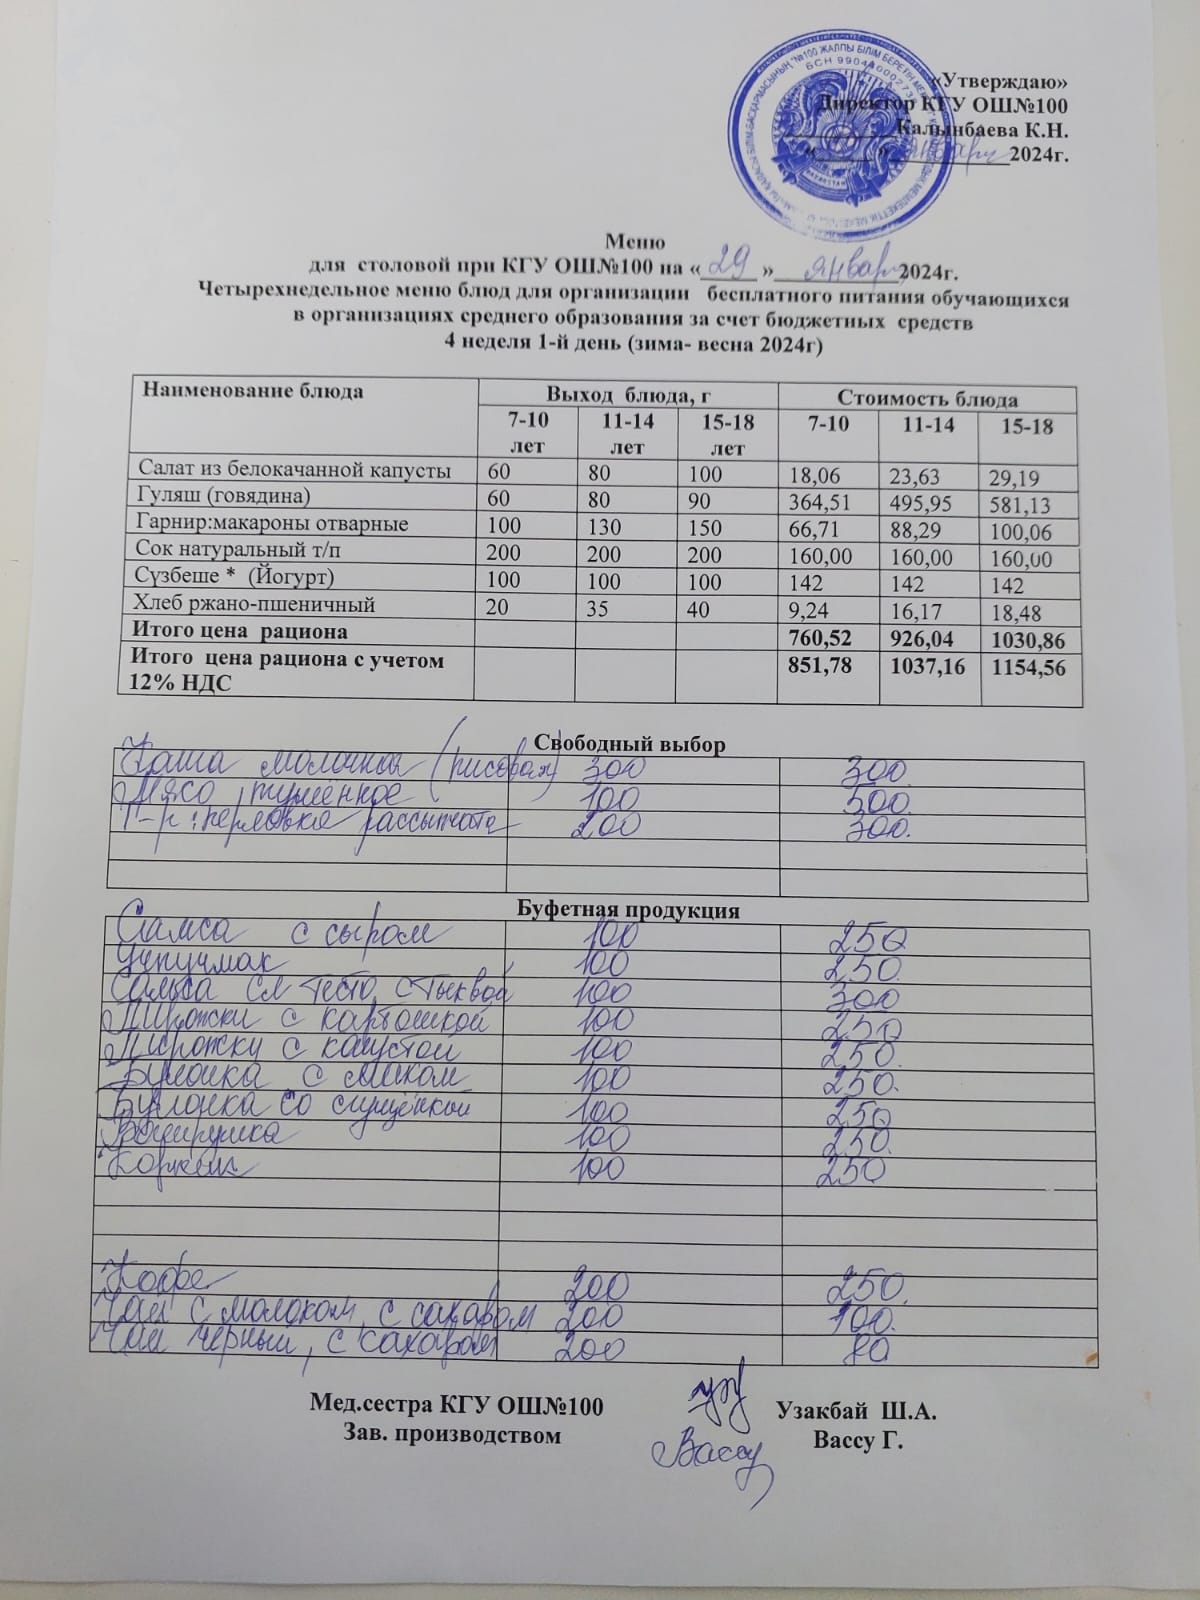 БАСҚАРМАСЫНЫҢ "№100 ЖАЛПЫ БІЛІМ БЕРЕТІН
БСН 99044000273
«Утверждаю»
Директор КГУ ОШ№100
Калынбаева К.Н.
« » январь 2024г.
Меню
для столовой при КГУ ОШ№100 на « 29 » январь 2024г.
Четырехнедельное меню блюд для организации бесплатного питания обучающихся
в организациях среднего образования за счет бюджетных средств
4 неделя 1-й день (зима- весна 2024г)
Наименование блюда Выход блюда, г Стоимость блюда
7-10 лет 11-14 лет 15-18 лет 7-10 11-14 15-18
Салат из белокачанной капусты 60 80 100 18,06 23,63 29,19
Гуляш (говядина) 60 80 90 364,51 495,95 581,13
Гарнир:макароны отварные 100 130 150 66,71 88,29 100,06
Сок натуральный т/п 200 200 200 160,00 160,00 160,00
Сүзбеше * (Йогурт) 100 100 100 142 142 142
Хлеб ржано-пшеничный 20 35 40 9,24 16,17 18,48
Итого цена рациона 760,52 926,04 1030,86
Итого цена рациона с учетом 851,78 1037,16 1154,56
12% НДС
Свободный выбор
Каша молочная (рисовая) 300 300
Мясо тушённое 100 500
Г-р: перловка рассыпчата 200 300.
Буфетная продукция
Самса с сыром 100 250
Учпучмак 100 250.
Самса сл тесто с тыквой 100 300
Пирожки с картошкой 100 250
Пирожки с капустой 100 250.
Булочка с маком 100 250.
Булочка со сгущёнкой 100 250
Ватрушка 100 250.
Коржик 100 250
Кофе 200 250.
Чай с молоком, с сахаром 200 100.
Чай чёрный, с сахаром 200 80
Мед.сестра КГУ ОШ№100 Узакбай Ш.А.
Зав. производством Вассу Вассу Г.